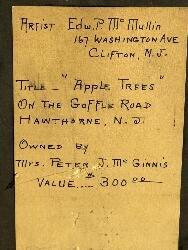 ARTIST EDW. P. MC MULLIN
167 WASHINGTON AVE
CLIFTON, N. J.
TITLE - "APPLE TREES"
ON THE GOFFLE ROAD
HAWTHORNE, N. J.
OWNED BY
MRS. PETER J. MC GINNIS
"VALUE.... 300 00